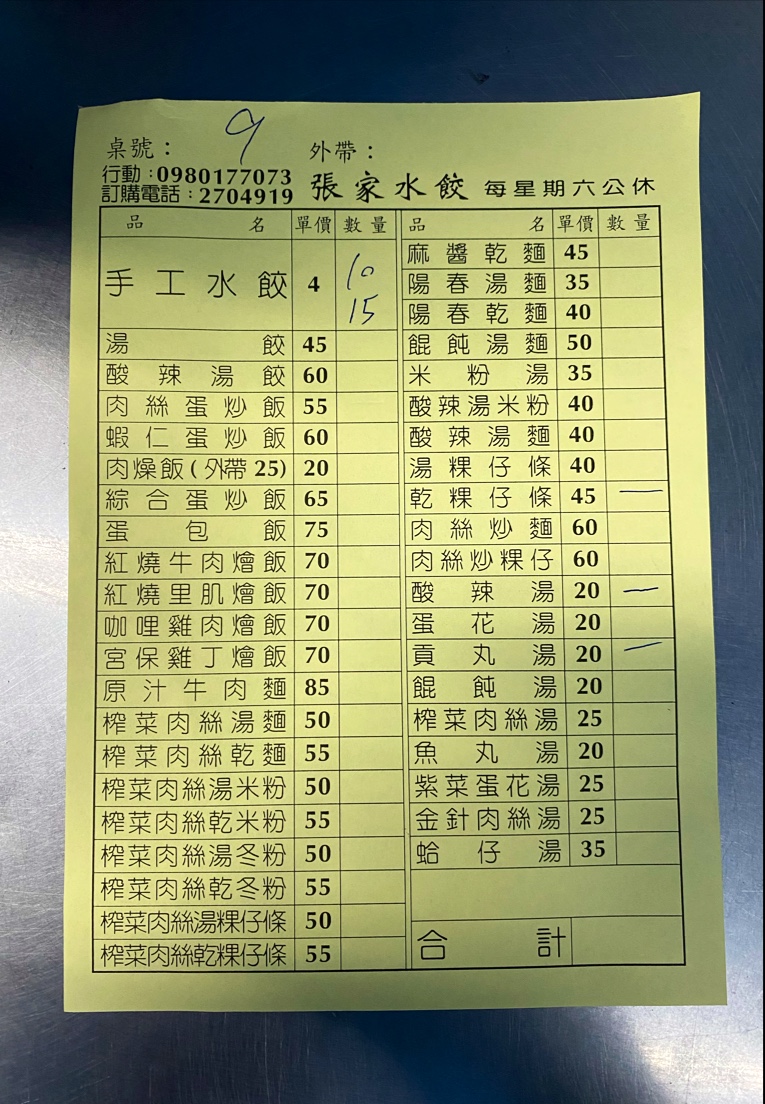 桌號： 9 外帶：
行動：0980177073
訂購電話：2704919 張家水餃 每星期六公休
品名 單價 數量
手工水餃 4 10
15
湯餃 45
酸辣湯餃 60
肉絲蛋炒飯 55
蝦仁蛋炒飯 60
肉燥飯(外帶25) 20
綜合蛋炒飯 65
蛋包飯 75
紅燒牛肉燴飯 70
紅燒里肌燴飯 70
咖哩雞肉燴飯 70
宮保雞丁燴飯 70
原汁牛肉麵 85
榨菜肉絲湯麵 50
榨菜肉絲乾麵 55
榨菜肉絲湯米粉 50
榨菜肉絲乾米粉 55
榨菜肉絲湯冬粉 50
榨菜肉絲乾冬粉 55
榨菜肉絲湯粿仔條 50
榨菜肉絲乾粿仔條 55
品名 單價 數量
麻醬乾麵 45
陽春湯麵 35
陽春乾麵 40
餛飩湯麵 50
米粉湯 35
酸辣湯米粉 40
酸辣湯麵 40
湯粿仔條 40
乾粿仔條 45 一
肉絲炒麵 60
肉絲炒粿仔 60
酸辣湯 20 一
蛋花湯 20
貢丸湯 20 一
餛飩湯 20
榨菜肉絲湯 25
魚丸湯 20
紫菜蛋花湯 25
金針肉絲湯 25
蛤仔湯 35
合計